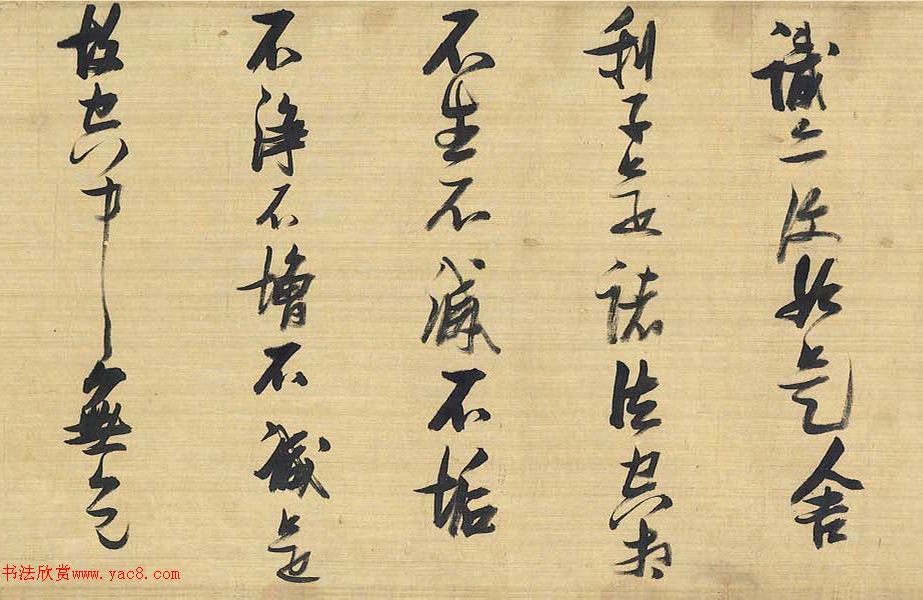 識亦復如是舍
利子是諸法空相
不生不滅不垢
不淨不增不減是
故空中無色
书法欣赏www.yac8.com